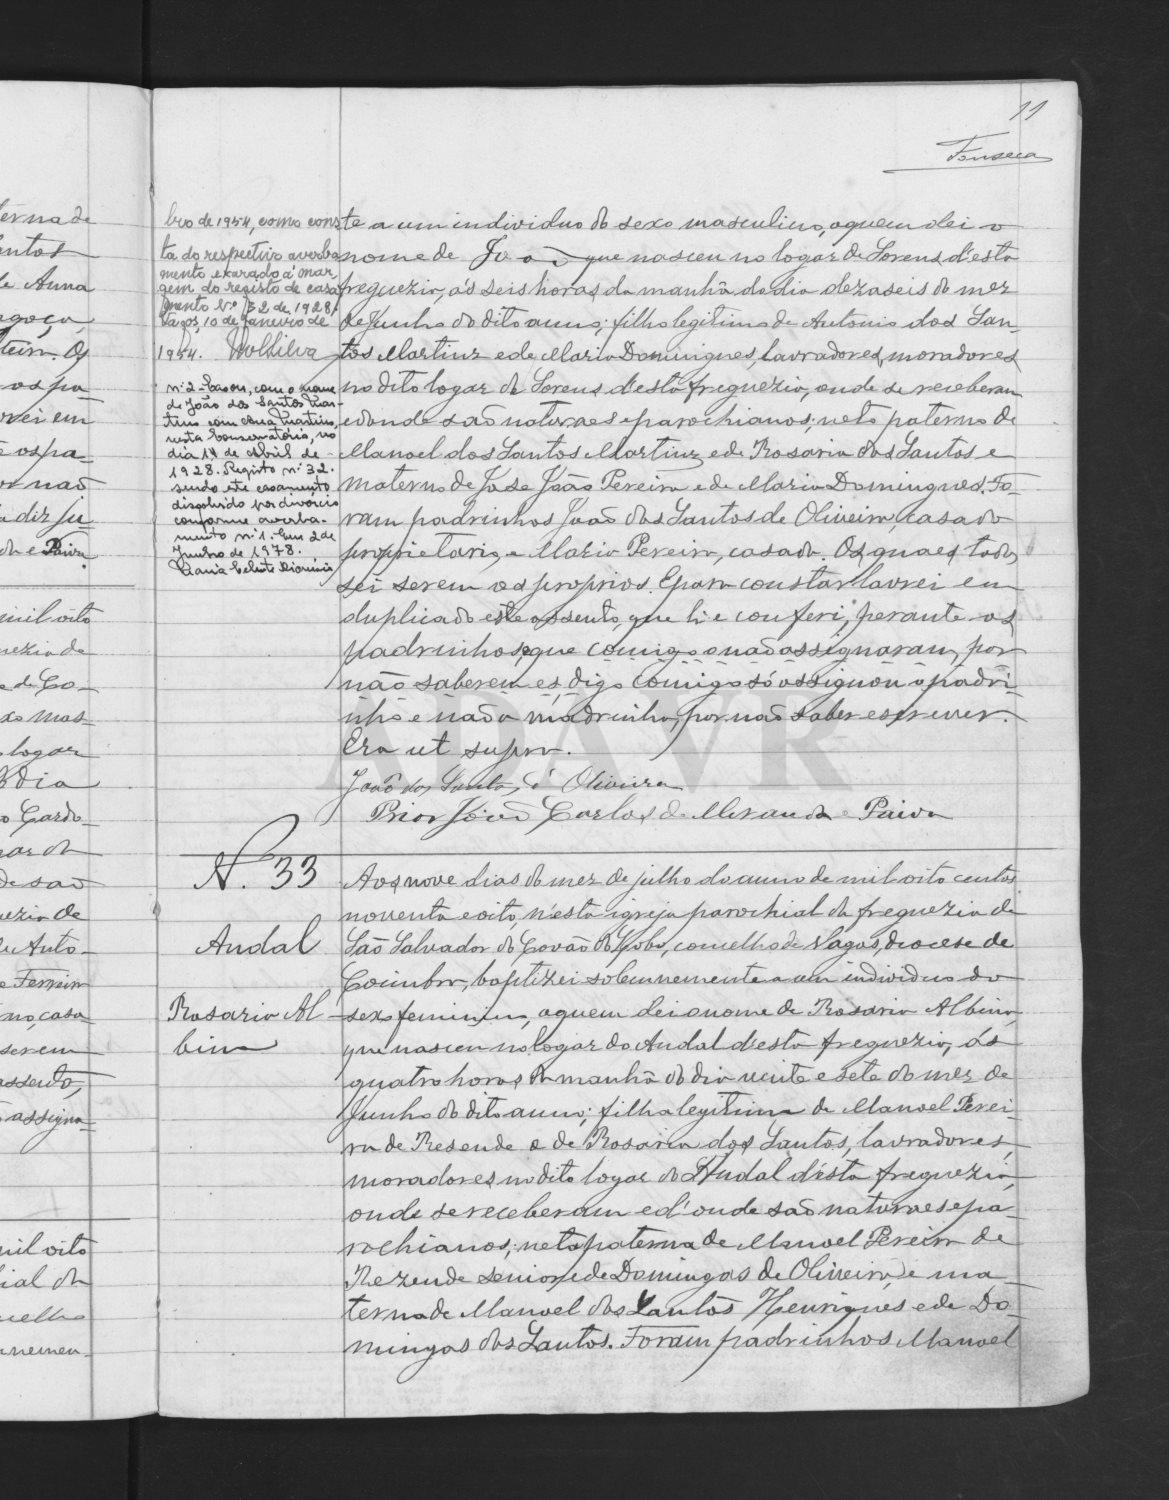 11
Fonseca
bro de 1954, como cons
ta do respectivo averba
mento exarado á mar
gem do registo de casa
mento N.º 32 de 1928.
Vagos, 10 de Janeiro de
1954.
n.º 2 - Casou, com o nome
de João dos Santos Mar-
tins com Ana Martins,
nesta Conservatória, no
dia 14 de Abril de
1928. Registo n.º 32.
sendo este casamento
dissolvido por divórcio
conforme averba-
mento n.º 1. Em 2 de
Junho de 1978.
Maria Celeste
te a um individuo do sexo masculino, a quem dei o
nome de João que nasceu no logar de Sorens d'esta
freguezia, ás seis horas da manhã do dia dezaseis do mez
de Junho do dito anno; filho legitimo de Antonio dos San-
tos Martins e de Maria Domingues, lavradores, moradores
no dito logar de Sorens d'esta freguezia, onde se receberam
e d'onde são naturaes e parochianos; neto paterno de
Manoel dos Santos Martins e de Rosaria dos Santos e
materno de José João Pereira e de Maria Domingues. Fo-
ram padrinhos João dos Santos de Oliveira, casado
proprietario, e Maria Pereira, casada. Os quaes todos
sei serem os proprios. E para constar lavrei em
duplicado este assento, que li e conferi, perante os
padrinhos, que comigo o não assignaram, por
não saberem es, digo comigo só assignou o padri-
nho e não a madrinha, por não saber escrever.
Era ut supra.
João dos Santos d' Oliveira
Prior João Carlos de Miranda e Paiva
N. 33
Andal
Rosaria Al-
bina
Aos nove dias do mez de julho do anno de mil oito centos
noventa e oito, n'esta igreja parochial da freguezia de
São Salvador do Covão do Lobo, concelho de Vagos, diocese de
Coimbra, baptizei solemnemente a um individuo do
sexo feminino, a quem dei o nome de Rosaria Albina,
que nasceu no logar do Andal d'esta freguezia, ás
quatro horas da manhã do dia vinte e sete do mez de
Junho do dito anno; filha legitima de Manoel Perei-
ra de Resende e de Rosaria dos Santos, lavradores,
moradores no dito logar do Andal d'esta freguezia,
onde se receberam e d'onde são naturaes e pa-
rochianos; neta paterna de Manoel Pereira de
Rezende senior, e de Domingas de Oliveira, e ma-
terna de Manoel dos Santos Henriques e de Do-
mingas dos Santos. Foram padrinhos Manoel
ADAVR